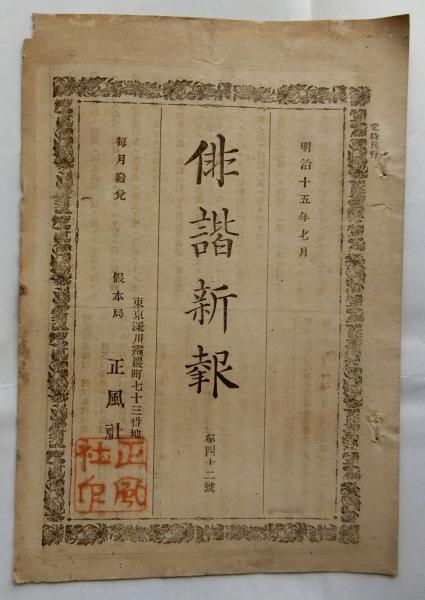 定時刊行
明治十五年七月
俳諧新報
第四十二號
每月發兌
東京深川靈巖町七十三番地
假本局 正風社
正風
社印